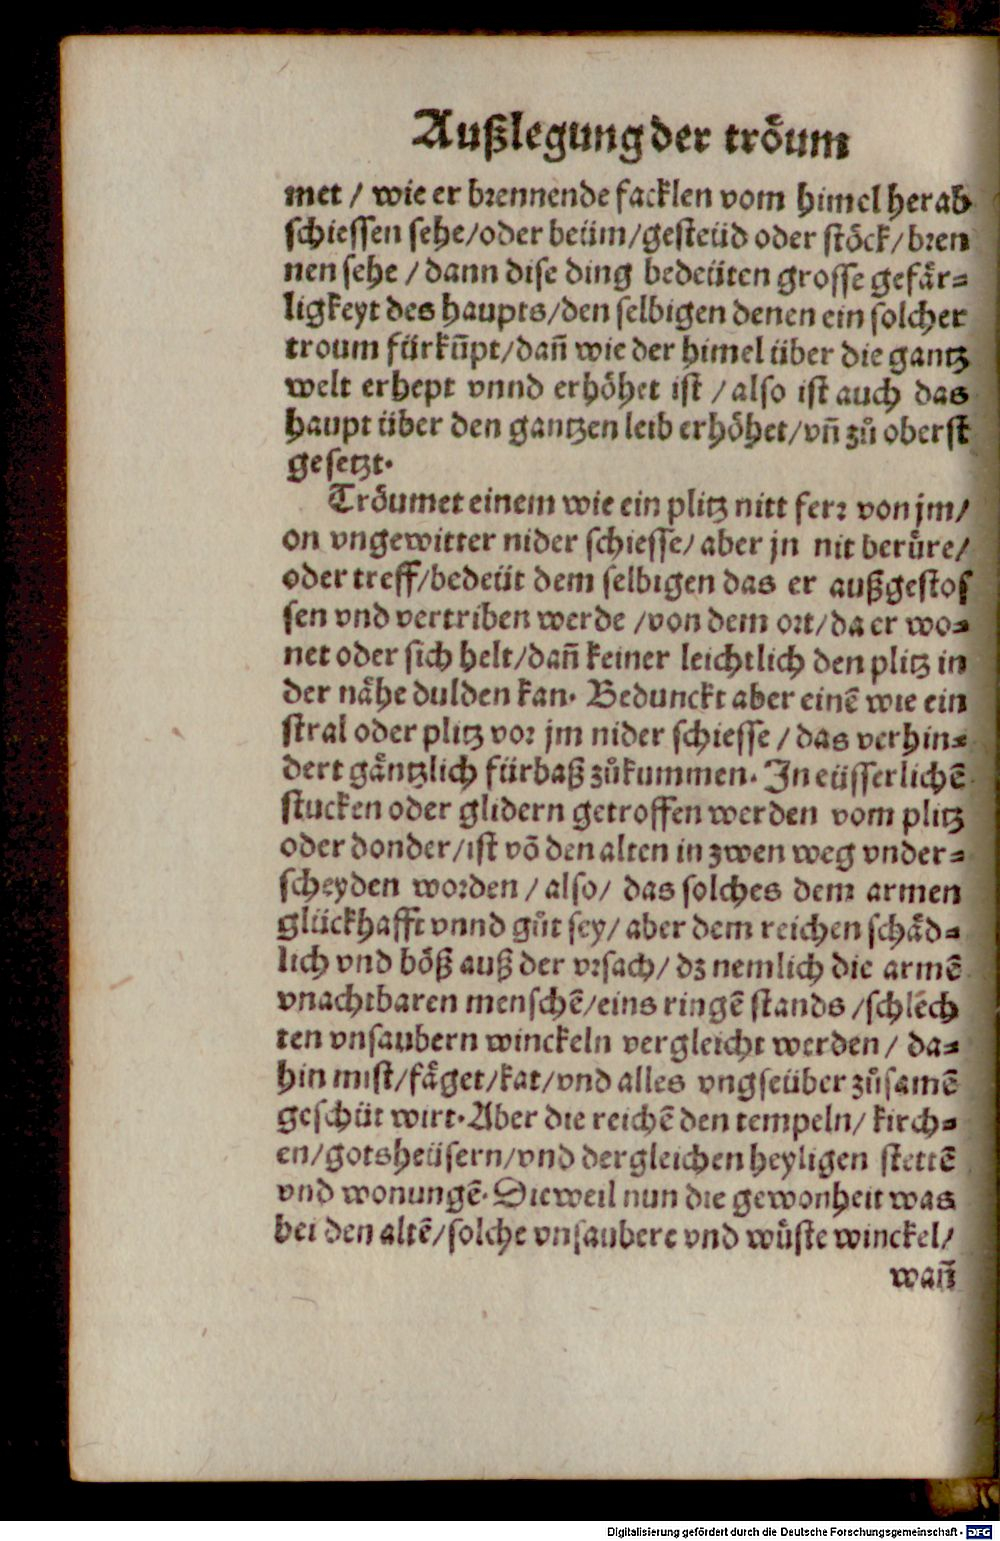 Außlegung der tröum
met / wie er brennende facklen vom himel herab
schiessen sehe/oder beüm/gesteüd oder stöck/bren
nen sehe / dann dise ding bedeüten grosse gefär⸗
ligkeyt des haupts/den selbigen denen ein solcher
troum fürkūpt/dañ wie der himel über die gantz
welt erhept vnnd erhöhet ist / also ist auch das
haupt über den gantzen leib erhöhet/vñ zů oberst
gesetzt.
Tröumet einem wie ein plitz nitt ferr von jm/
on vngewitter nider schiesse/ aber jn nit berüre/
oder treff/bedeüt dem selbigen das er außgestos
sen vnd vertriben werde /von dem ort/da er wo⸗
net oder sich helt/dañ keiner leichtlich den plitz in
der nähe dulden kan. Bedunckt aber einē wie ein
stral oder plitz vor jm nider schiesse / das verhin⸗
dert gäntzlich fürbaß zůkummen. In eüsserlichē
stucken oder glidern getroffen werden vom plitz
oder donder/ist vō den alten in zwen weg vnder⸗
scheyden worden / also/ das solches dem armen
glückhafft vnnd gůt sey/ aber dem reichen schäd⸗
lich vnd böß auß der vrsach/ dz nemlich die armē
vnachtbaren menschē/eins ringē stands /schlech
ten vnsaubern winckeln vergleicht werden / da⸗
hin mist/fäget/kat/vnd alles vngseüber zůsamē
geschüt wirt. Aber die reichē den tempeln/ kirch⸗
en/gotsheüsern/vnd dergleichen heyligen stettē
vnd wonungē. Dieweil nun die gewonheit was
bei den altē/solche vnsaubere vnd wüste winckel/
wañ
Digitalisierung gefördert durch die Deutsche Forschungsgemeinschaft - DFG